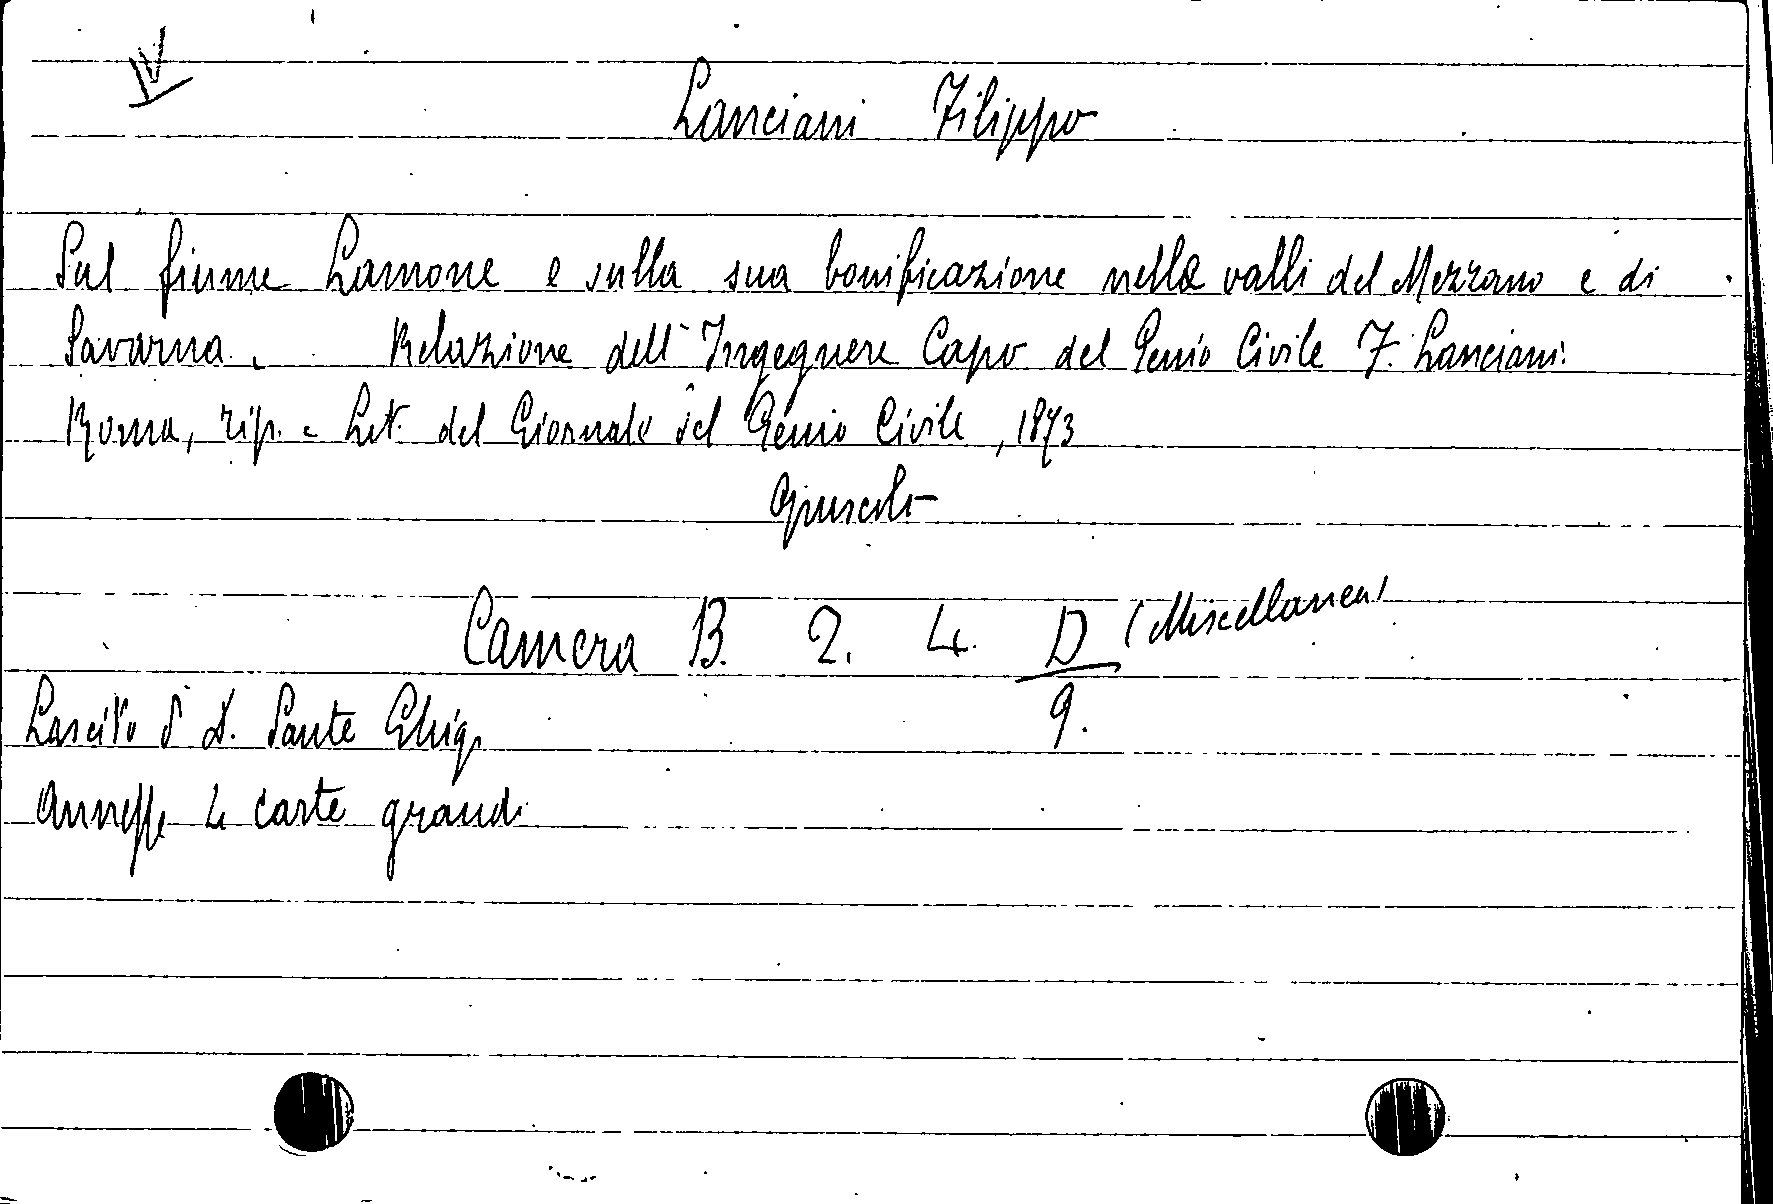 Lanciani Filippo
Sul fiume Lamone e sulla sua bonificazione nelle valli del Mezzano e di
Savarna. Relazione dell'Ingegnere Capo del Genio Civile F. Lanciani.
Roma, tip. e Lit. del Giornale del Genio Civile, 1873
Opuscolo
Camera B. 2. 4. D (Miscellanea)
9.
Lascito D. Sante Ghigi
Annesse 4 carte grandi